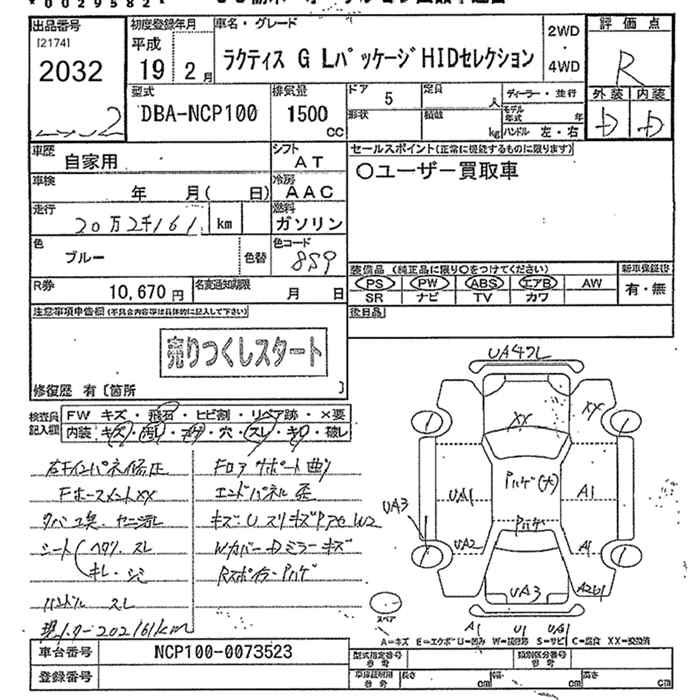 出品番号
[2174]
2032
初度登録年月
平成
19 2月
車名・グレード
ラクティス G LパッケージHIDセレクション
2WD
・
4WD
評価点
R
外装 内装
D D
型式
DBA-NCP100
排気量
1500
cc
ドア 5
定員 人
形状
積載 kg
ディーラー・並行
モデル年式 年
ハンドル 左・右
車歴
自家用
シフト
AT
車検
年 月( 日)
冷房
AAC
走行
20万2千161 km
燃料
ガソリン
色
ブルー
色替
色コード
8S9
R券
10,670円
名変通知期限
月 日
セールスポイント(正常に機能するものに限ります)
○ユーザー買取車
装備品 (純正品に限り○をつけてください)
PS PW ABS エアB AW
SR ナビ TV カワ
新車保証書
有・無
後日品
注意事項申告欄(不具合内容等は具体的に記入して下さい)
売りつくしスタート
修復歴 有〔箇所 〕
検査員記入欄
FW キズ・飛石・ヒビ割・リペア跡・×要
内装 キズ・汚れ・コゲ・穴・スレ・キレ・破レ
右インパネ修正
Fホースメントxx
タバコ臭 ヤニ汚レ
シート
ヘタリ、スレ
キレ・シミ
ハンドル スレ
現メーター202161km
Fロアサポート曲り
エンドパネル歪
Wカバー Dミラーキズ
Rスポイラーハゲ
UA42L
XX
XX
Pハゲ(大)
Pハゲ
UA1
A1
UA3
UA2
A1
UA3
A2U1
スペア
A1 U1 UA1
A=キズ E=エクボ U=凹み W=補修跡 S=サビ C=腐食 XX=交換済
車台番号
NCP100-0073523
登録番号
型式指定番号
参考
類別区分番号
参考
車庫証明用
参考
長さ cm
幅 cm
高さ cm